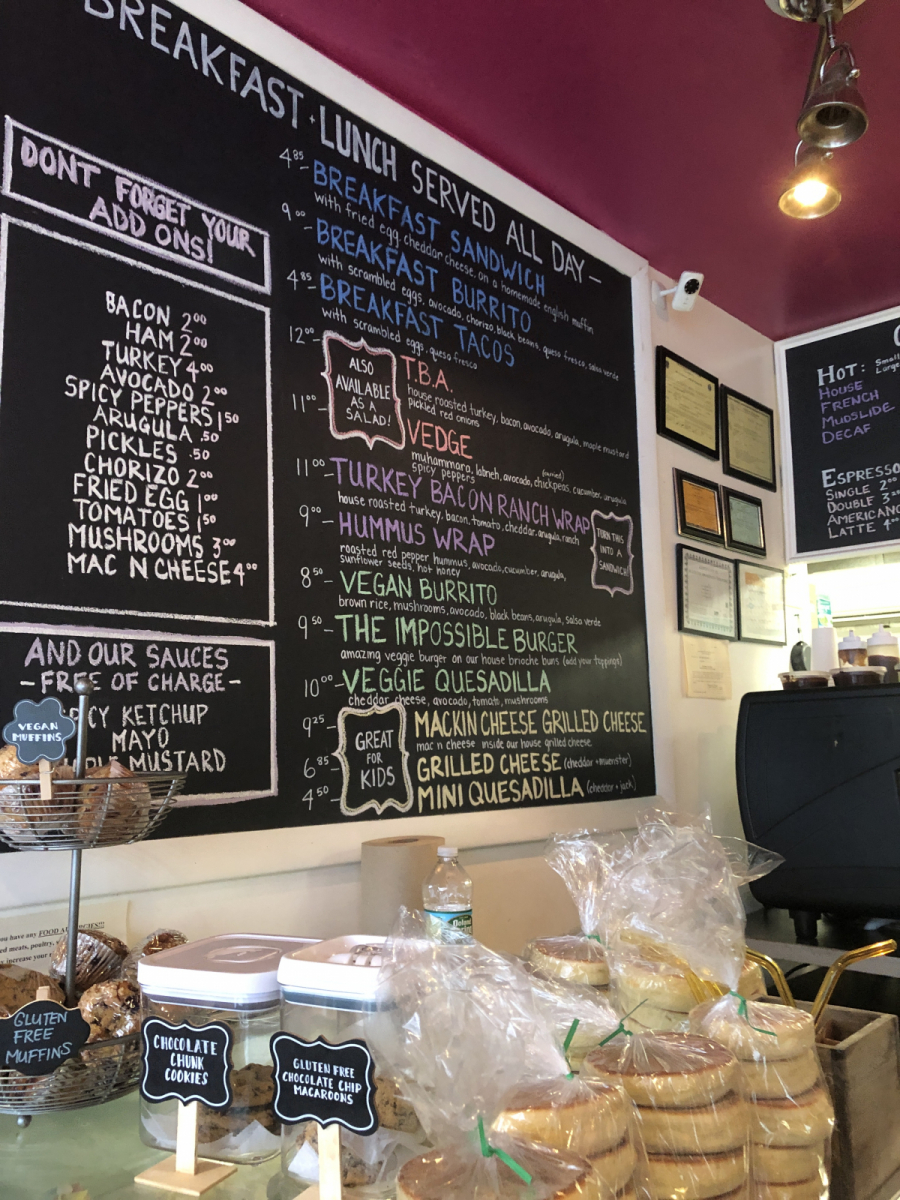 BREAKFAST + LUNCH SERVED ALL DAY —
DONT FORGET YOUR
ADD ONS!
BACON 2⁰⁰
HAM 2⁰⁰
TURKEY 4⁰⁰
AVOCADO 2⁰⁰
SPICY PEPPERS 1⁵⁰
ARUGULA .50
PICKLES .50
CHORIZO 2⁰⁰
FRIED EGG 1⁰⁰
TOMATOES 1⁵⁰
MUSHROOMS 3⁰⁰
MAC N CHEESE 4⁰⁰
AND OUR SAUCES
-FREE OF CHARGE-
KETCHUP
MAYO
MUSTARD
4⁸⁵ - BREAKFAST SANDWICH
with fried egg, cheddar cheese, on a homemade english muffin
9⁰⁰ - BREAKFAST BURRITO
with scrambled eggs, avocado, chorizo, black beans, queso fresco, salsa verde
4⁸⁵ - BREAKFAST TACOS
with scrambled eggs, queso fresco
ALSO
AVAILABLE
AS A
SALAD!
12⁰⁰ - T.B.A.
house roasted turkey, bacon, avocado, arugula, maple mustard
pickled red onions
11⁰⁰ - VEDGE
muhammara, labneh, avocado, chickpeas, cucumber, arugula
spicy peppers
11⁰⁰ - TURKEY BACON RANCH WRAP
house roasted turkey, bacon, tomato, cheddar, arugula, ranch
9⁰⁰ - HUMMUS WRAP
roasted red pepper hummus, avocado, cucumber, arugula,
sunflower seeds, hot honey
TURN THIS
INTO A
SANDWICH!
8⁵⁰ - VEGAN BURRITO
brown rice, mushrooms, avocado, black beans, arugula, salsa verde
9⁵⁰ - THE IMPOSSIBLE BURGER
amazing veggie burger on our house brioche buns (add your toppings)
10⁰⁰ - VEGGIE QUESADILLA
cheddar cheese, avocado, tomato, mushrooms
GREAT
FOR
KIDS
9²⁵ - MACKIN CHEESE GRILLED CHEESE
mac n cheese inside our house grilled cheese.
6⁸⁵ - GRILLED CHEESE (cheddar + muenster)
4⁵⁰ - MINI QUESADILLA (cheddar + jack)
HOT:
HOUSE
FRENCH
MUDSLIDE
DECAF
ESPRESSO
SINGLE 2⁰⁰
DOUBLE
AMERICANO
LATTE
VEGAN
MUFFINS
GLUTEN
FREE
MUFFINS
CHOCOLATE
CHUNK
COOKIES
GLUTEN FREE
CHOCOLATE CHIP
MACAROONS
have any FOOD
meats, poultry,
increase your